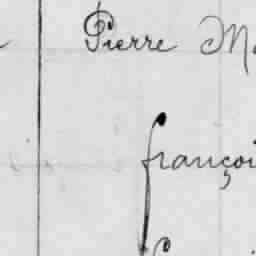 Pierre Ma
françoi